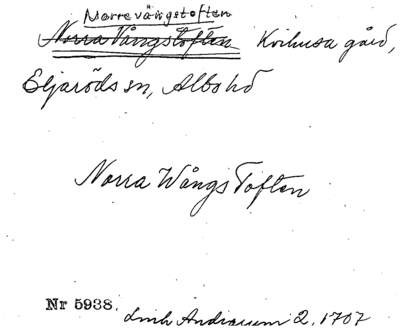 Norrevångstoften
Norra Vångstoften Kvihusa gård,
Eljaröds sn, Albo hd
Norra Wångs Toften
Nr 5938. Lmh Andrarum 2, 1707